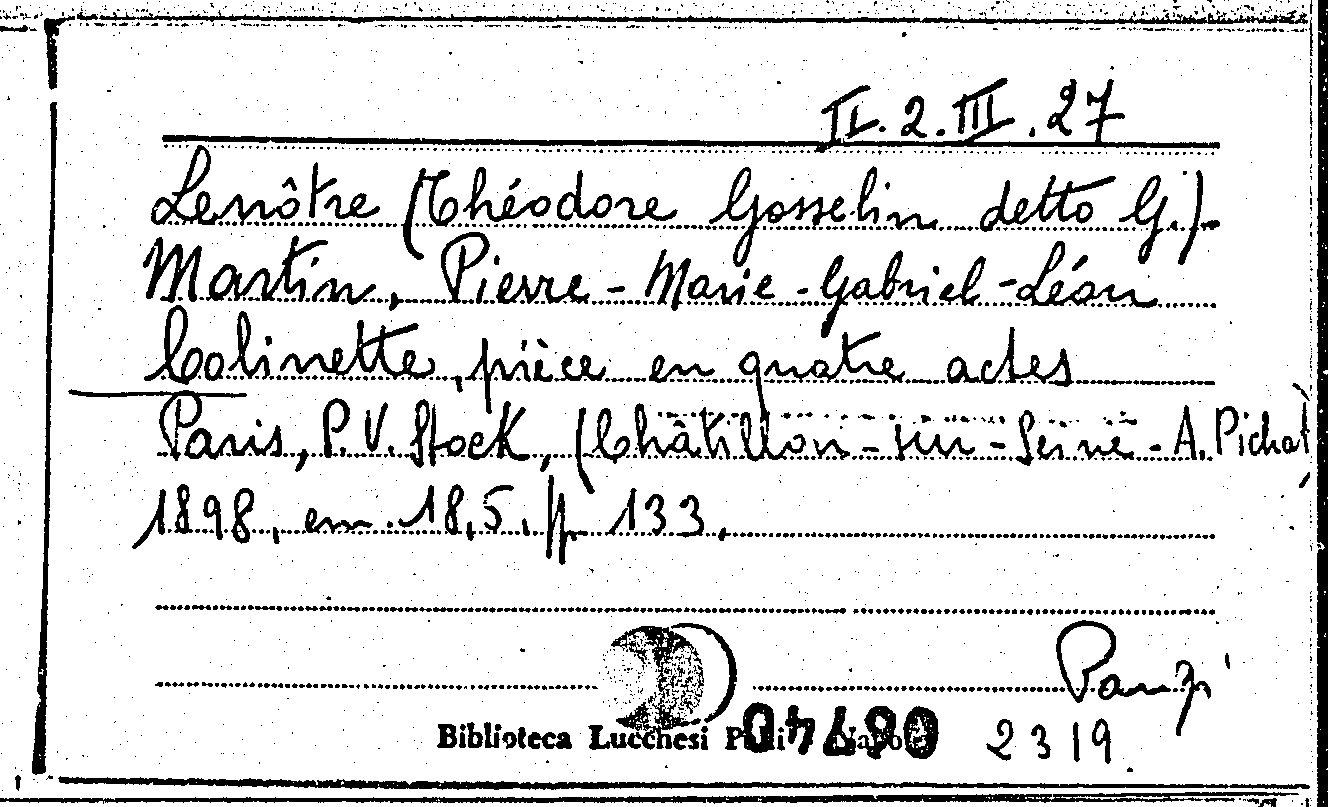 II.2.III.27
Lenôtre (Théodore Gosselin detto G.)-
Martin, Pierre-Marie-Gabriel-Léon
Colinette, pièce en quatre actes
Paris, P.V. Stock, (Châtillon-sur-Seine-A. Pichat)
1898, em. 18,5. p. 133.
Biblioteca Lucchesi
2319.